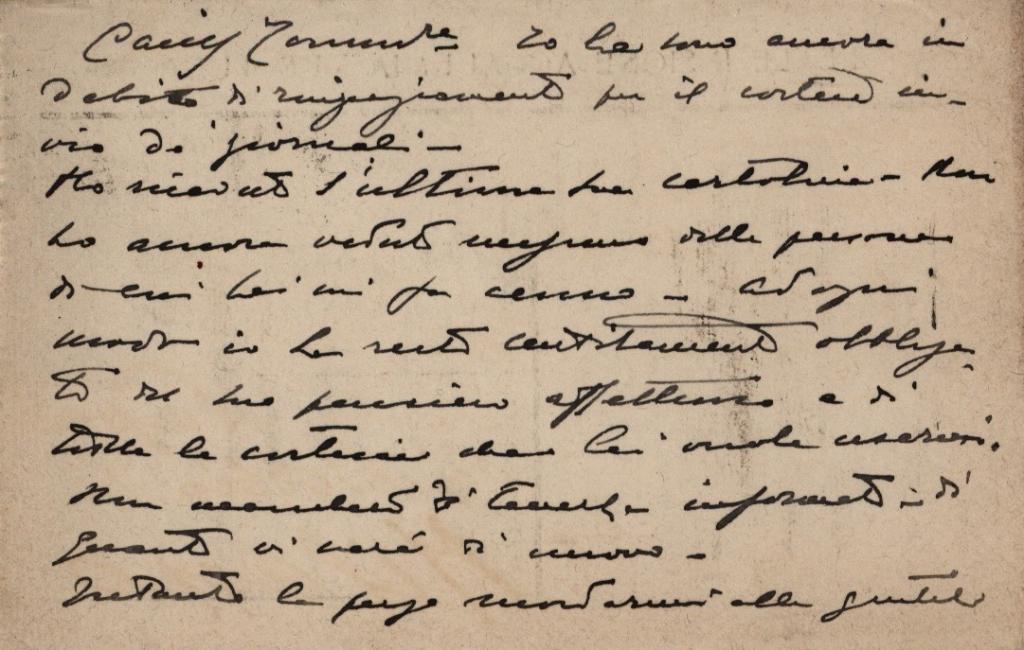 Io Le sono ancora in
debito di ringraziamenti per il cortese in-
vio dei giornali -
Ho ricevuto l'ultima sua cartolina - Non
ho ancora veduto nessuno delle persone
di cui Lei mi fa cenno - Ad ogni
modo io Le resto obbliga-
to del suo pensiero affettuoso e di
tutte le cortesie che Lei vuole usarmi.
Non mancherò di tenerla informato di
quanto vi sarà di nuovo -
Intanto La prego ricordarmi alla gentile